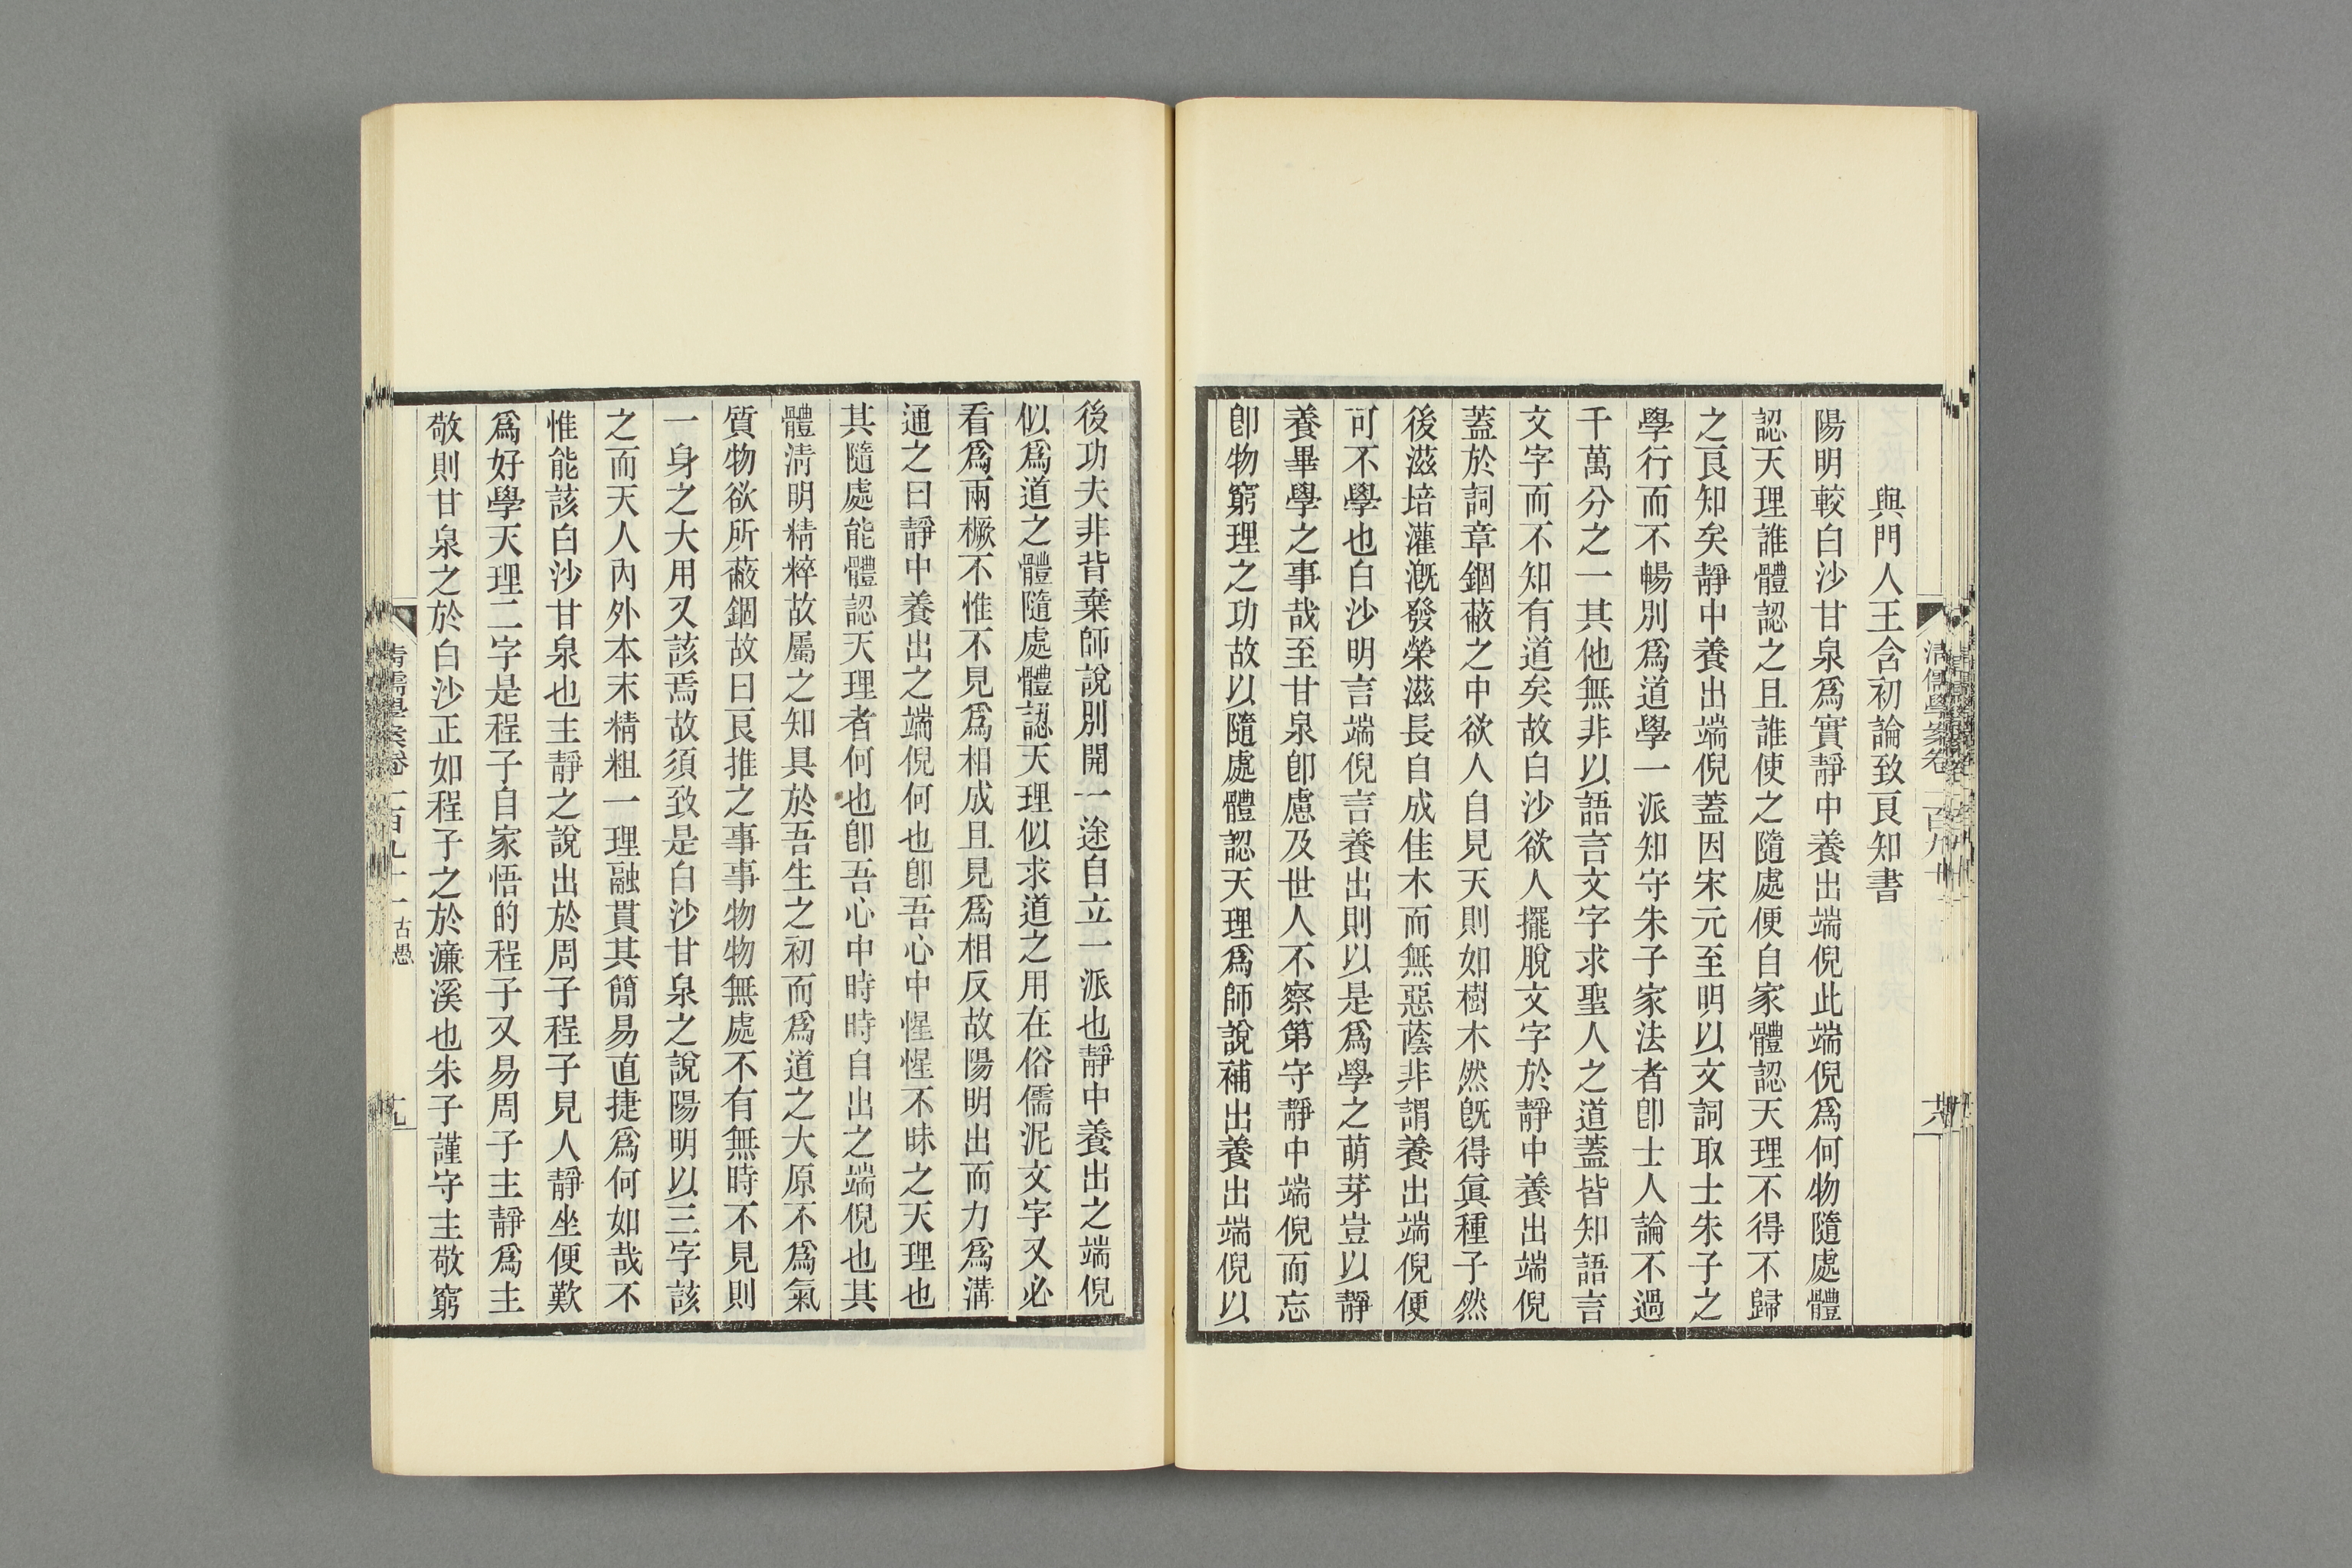 與門人王含初論致良知書
陽明較白沙甘泉爲實靜中養出端倪此端倪爲何物隨處體
認天理誰體認之且誰使之隨處便自家體認天理不得不歸
之良知矣靜中養出端倪蓋因宋元至明以文詞取士朱子之
學行而不暢別爲道學一派知守朱子家法者卽士人論不過
千萬分之一其他無非以語言文字求聖人之道蓋皆知語言
文字而不知有道矣故白沙欲人擺脫文字於靜中養出端倪
蓋於詞章錮蔽之中欲人自見天則如樹木然旣得眞種子然
後滋培灌漑發榮滋長自成佳木而無惡蔭非謂養出端倪便
可不學也白沙明言端倪言養出則以是爲學之萌芽豈以靜
養畢學之事哉至甘泉卽慮及世人不察第守靜中端倪而忘
卽物窮理之功故以隨處體認天理爲師說補出養出端倪以
後功夫非背棄師說別開一途自立一派也靜中養出之端倪
似爲道之體隨處體認天理似求道之用在俗儒泥文字又必
看爲兩橛不惟不見爲相成且見爲相反故陽明出而力爲溝
通之曰靜中養出之端倪何也卽吾心中惺惺不昧之天理也
其隨處能體認天理者何也卽吾心中時時自出之端倪也其
體淸明精粹故屬之知具於吾生之初而爲道之大原不爲氣
質物欲所蔽錮故曰良推之事事物物無處不有無時不見則
一身之大用又該焉故須致是白沙甘泉之說陽明以三字該
之而天人內外本末精粗一理融貫其簡易直捷爲何如哉不
惟能該白沙甘泉也主靜之說出於周子程子見人靜坐便歎
爲好學天理二字是程子自家悟的程子又易周子主靜爲主
敬則甘泉之於白沙正如程子之於濂溪也朱子謹守主敬窮
古愚